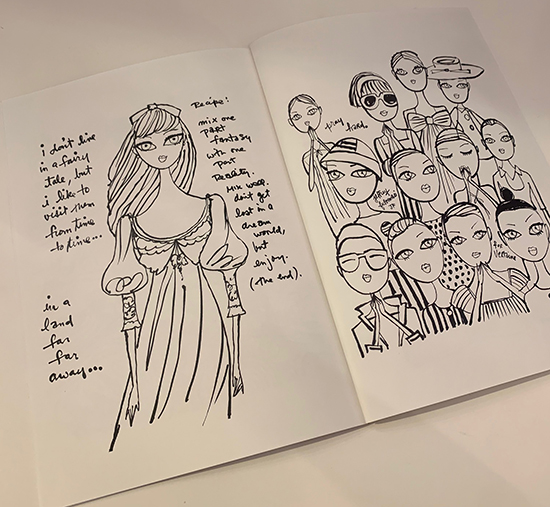 i don't live
in a fairy
tale, but
i like to
visit them
from time
to time...
in a
land
far
far
away...
Recipe:
mix one
part
fantasy
with one
part
Reality.
Mix well.
don't get
lost in a
dream
world,
but
enjoy.
(the end).
tiny